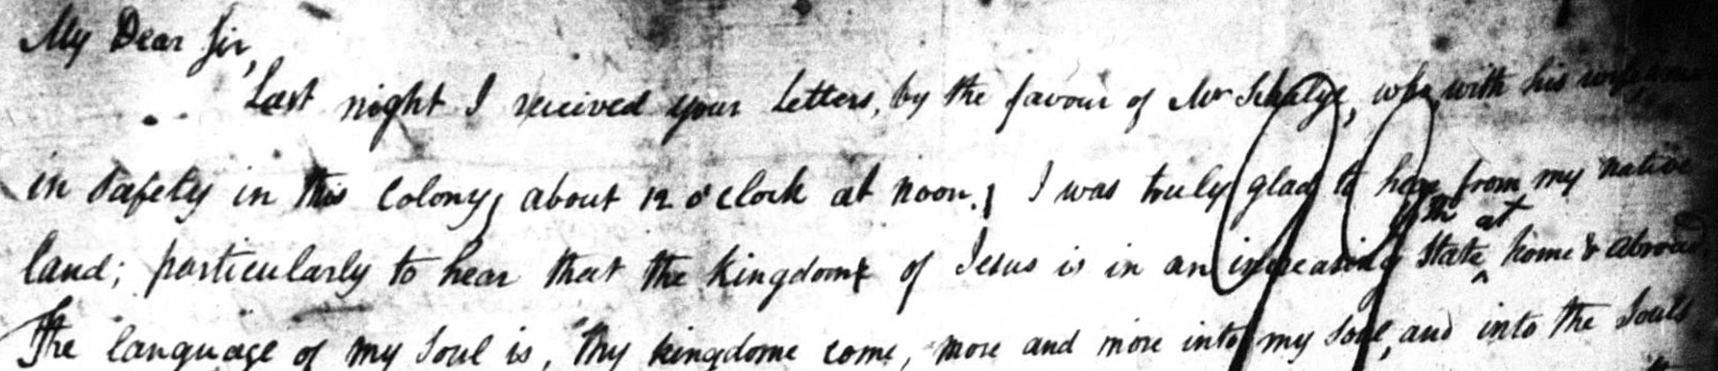 My Dear Sir,
Last night I received your Letters, by the favour of Mr Schulye, who with his wife came
in safety in this Colony, about 12 o'clock at noon. I was truly glad to hear from my native
both at
land; particularly to hear that the kingdome of Jesus is in an increasing state ^ home & abroad
The language of my Soul is, Thy kingdome come, more and more into my Soul, and into the Souls